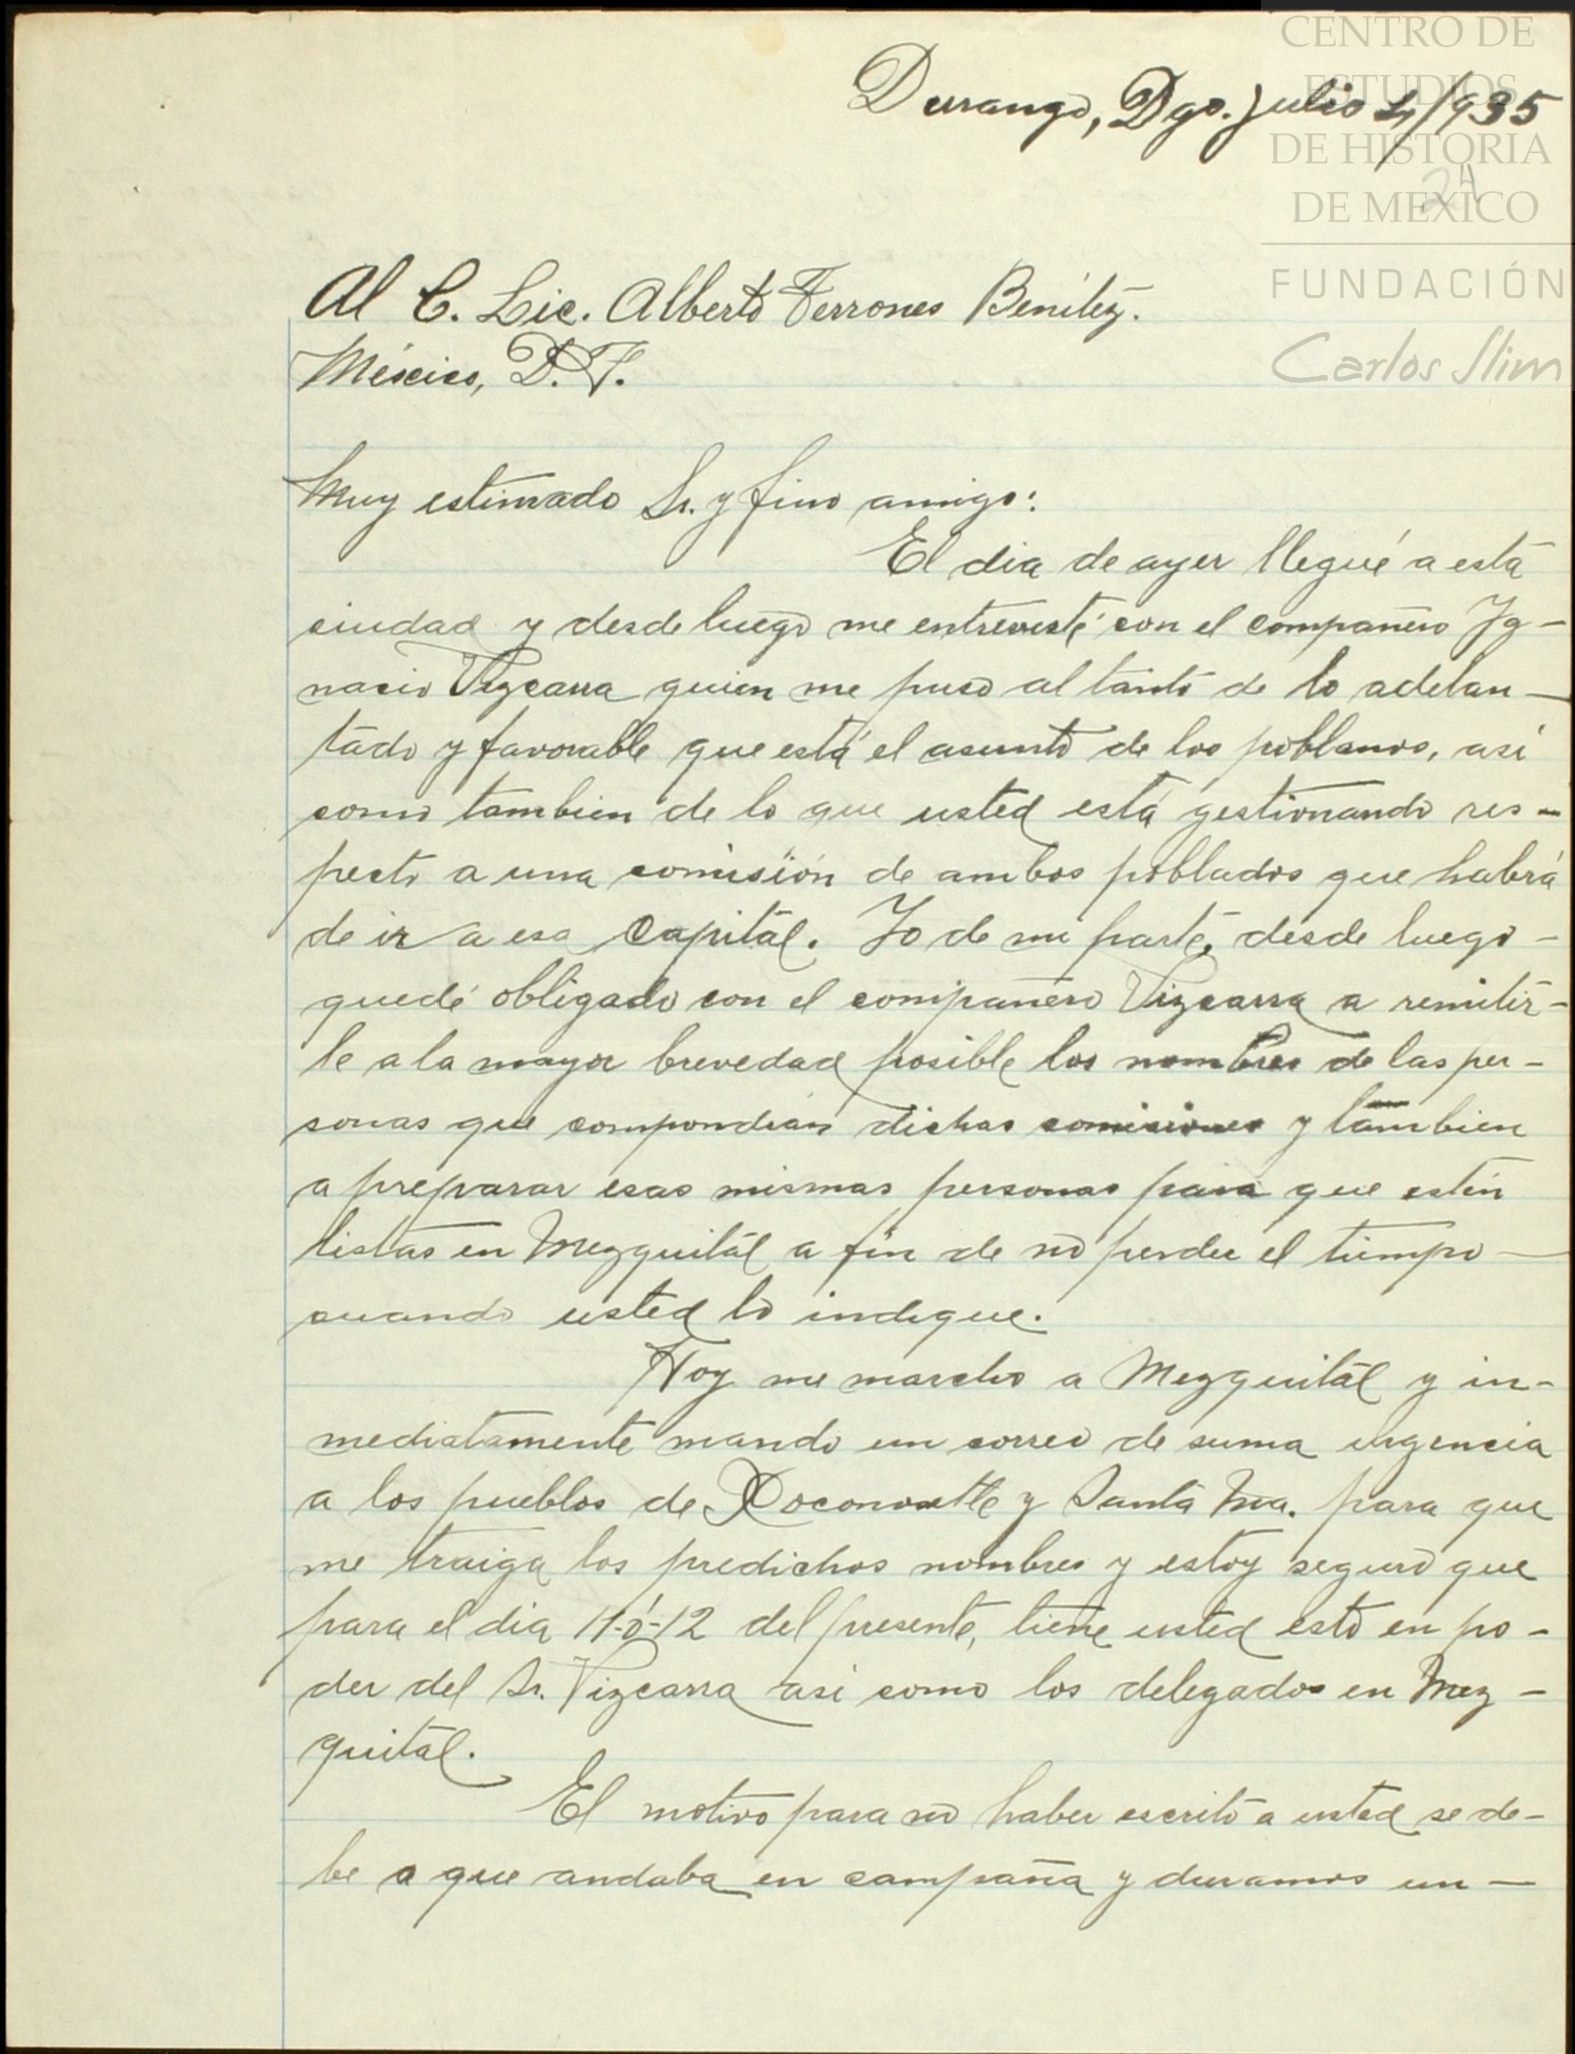 CENTRO DE
ESTUDIOS
DE HISTORIA
DE MÉXICO
FUNDACIÓN
Carlos Slim
Durango, Dgo. julio 4/935
24
Al C. Lic. Alberto Terrones Benítez.
México, D. F.
Muy estimado Sr. y fino amigo:
El dia de ayer llegué a esta
ciudad y desde luego me entrevisté con el compañero Ig-
nacio Vizcarra quien me puso al tanto de lo adelan-
tado y favorable que está el asunto de los poblanos, asi
como tambien de lo que usted está gestionando res-
pecto a una comisión de ambos poblados que habrá
de ir a esa Capital. Yo de mi parte, desde luego -
quedé obligado con el compañero Vizcarra a remitir-
le a la mayor brevedad posible los nombres de las per-
sonas que compondrán dichas comisiones y tambien
a preparar esas mismas personas para que estén
listas en Mezquital a fin de no perder el tiempo -
cuando usted lo indique.
Hoy me marcho a Mezquital y in-
mediatamente mando un correo de suma urgencia
a los pueblos de Xoconoxtle y Santa Ma. para que
me traiga los predichos nombres y estoy seguro que
para el dia 11-ó-12 del presente, tiene usted esto en po-
der del Sr. Vizcarra asi como los delegados en Mez-
quital.
El motivo para no haber escrito a usted se de-
be a que andaba en campaña y duramos un -